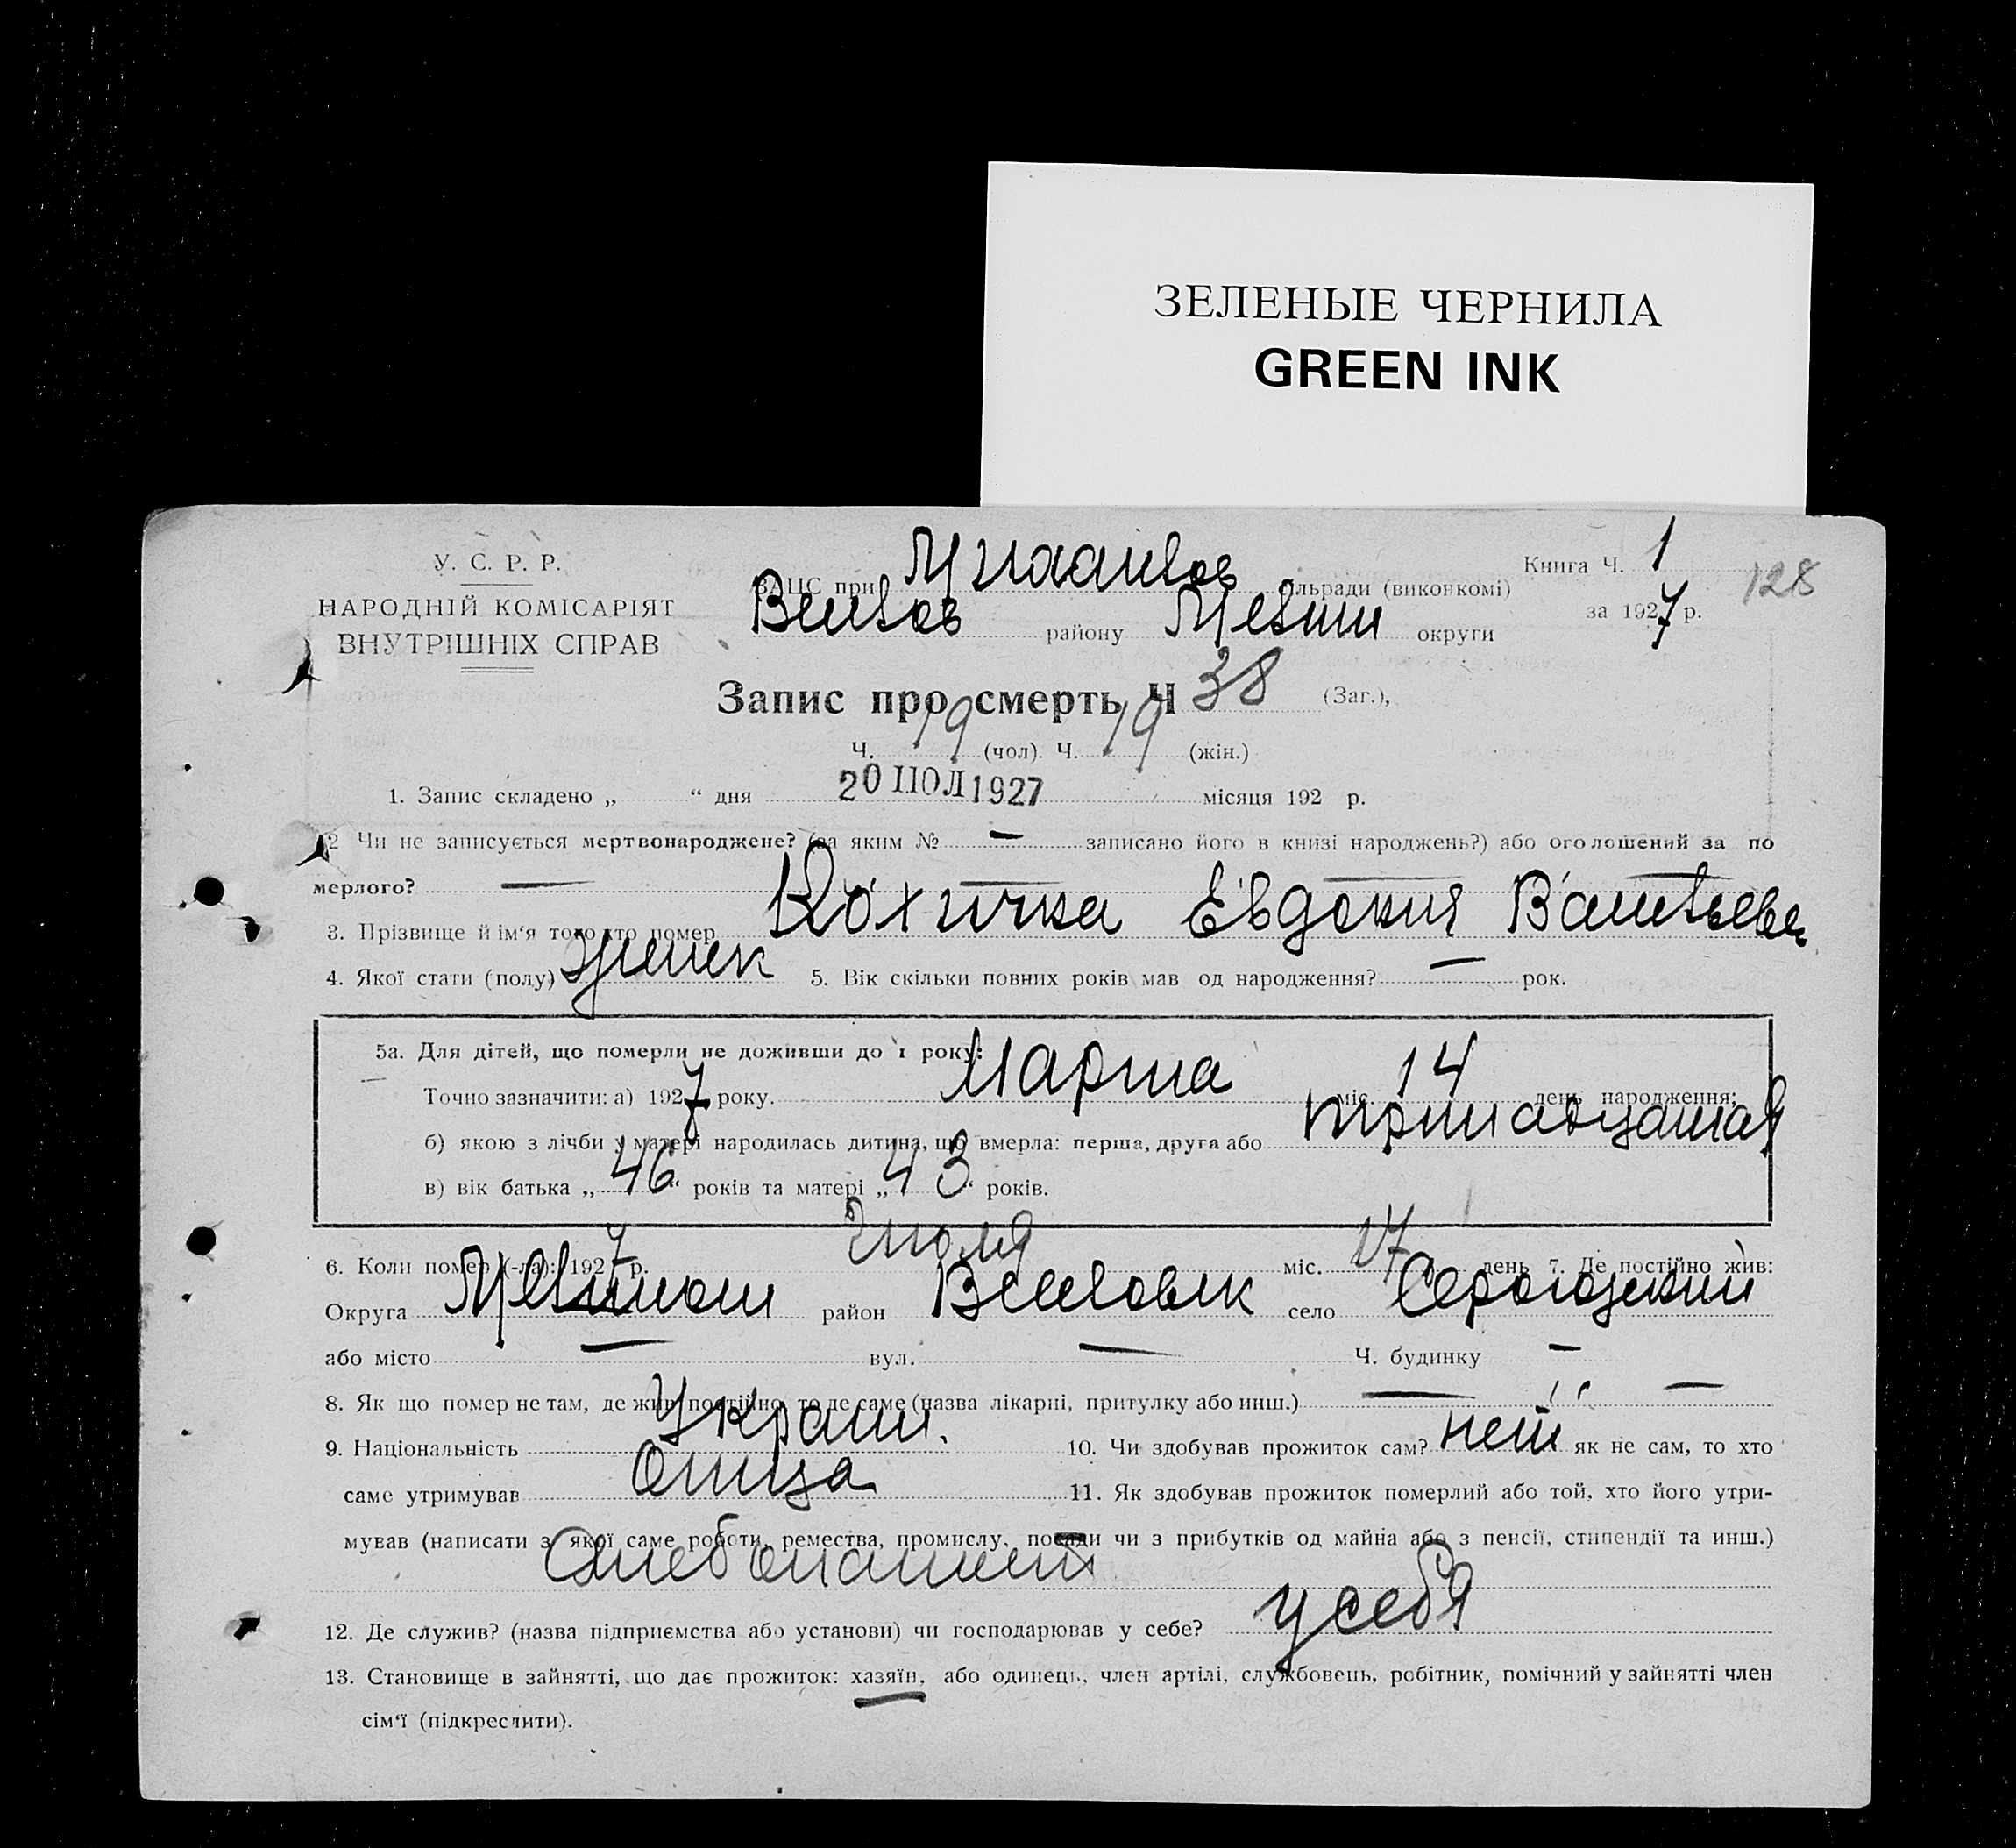 ЗЕЛЕНЫЕ ЧЕРНИЛА
GREEN INK
У. С. Р. Р.
НАРОДНІЙ КОМІСАРІЯТ
ВНУТРІШНІХ СПРАВ
ЗАЦС при Михайлов сільради (виконкомі)
району Меліт округи
Книга Ч. 1
за 1927 р.
128
Запис про смерть Ч 38 (Заг.),
Ч. 19 (чол). Ч. 19 (жін.)
1. Запис складено „ “ дня 20 ИЮЛ 1927 місяця 192 р.
2 Чи не записується мертвонароджене? (за яким № — записано його в книзі народжень?) або оголошений за по
мерлого? —
3. Прізвище й ім‘я того хто помер Евдокия
4. Якої стати (полу) женск 5. Вік скільки повних років мав од народження? — рок.
5а. Для дітей, що померли не доживши до 1 року:
Точно зазначити: а) 1927 року. Марта міс. 14 день народження;
б) якою з лічби у матері народилась дитина, що вмерла: перша, друга або тринадцатая
в) вік батька „ 46 “ років та матері „ 43 “ років.
6. Коли помер (-ла): 1927 р. Июля міс. 17 день 7. Де постійно жив:
Округа район село
або місто — вул. — Ч. будинку —
8. Як що помер не там, де жив постійно, то де саме (назва лікарні, притулку або инш.) —
9. Національність Украин. 10. Чи здобував прожиток сам? нет як не сам, то хто
саме утримував Отца 11. Як здобував прожиток померлий або той, хто його утри-
мував (написати з якої саме роботи, ремества, промислу, посади чи з прибутків од майна або з пенсії, стипендії та инш.)
Хлебопашест
12. Де служив? (назва підприємства або установи) чи господарював у себе? у себя
13. Становище в зайнятті, що дає прожиток: хазяїн, або одинець, член артілі, службовець, робітник, помічний у зайнятті член
сім‘ї (підкреслити).